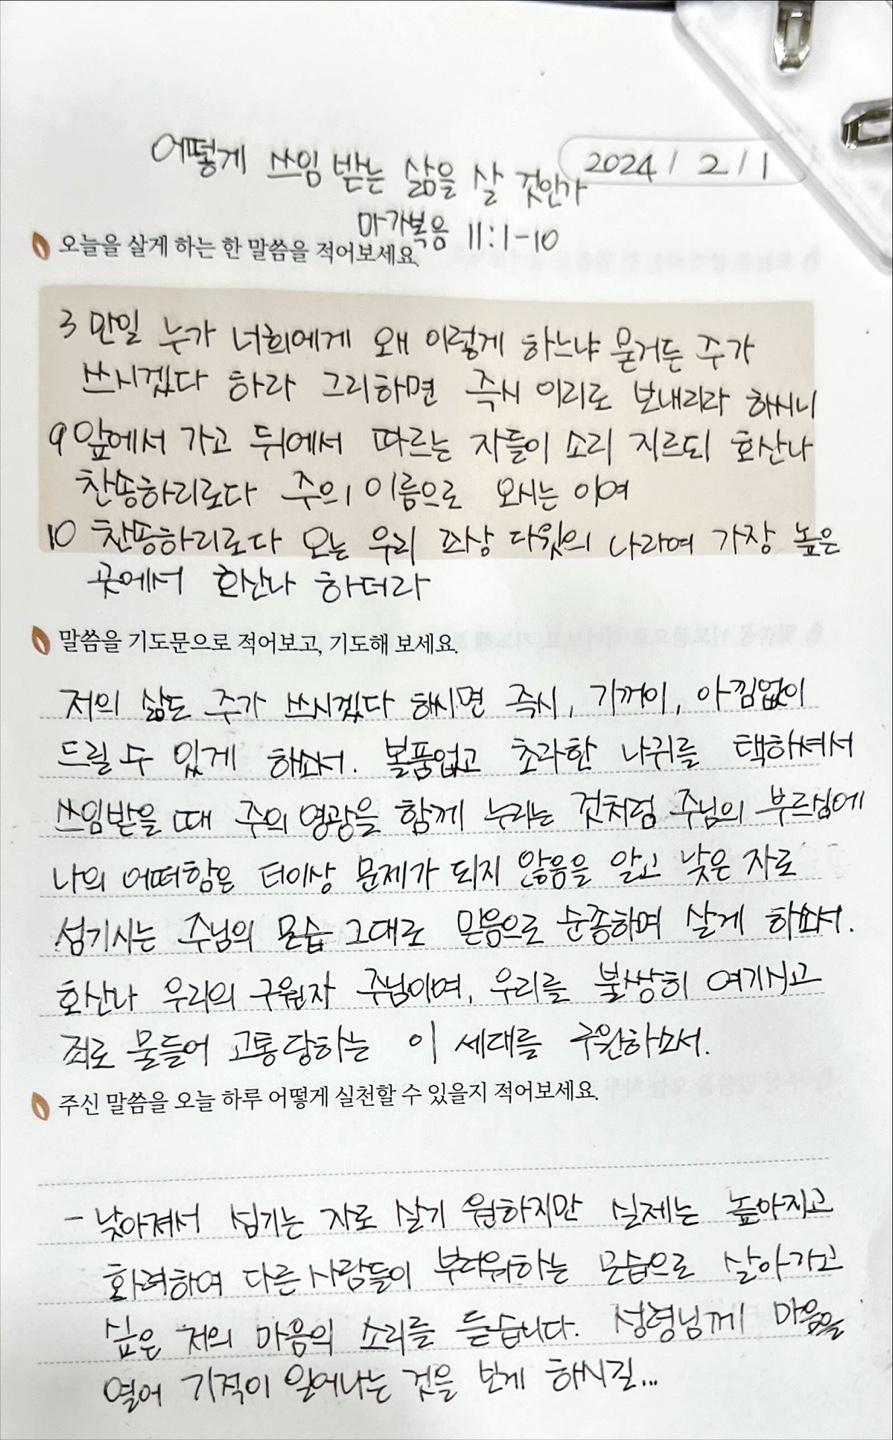 어떻게 쓰임 받는 삶을 살 것인가
2024 / 2 / 1
마가복음 11:1-10
오늘을 살게 하는 한 말씀을 적어보세요.
3 만일 누가 너희에게 왜 이렇게 하느냐 묻거든 주가
쓰시겠다 하라 그리하면 즉시 이리로 보내리라 하시니
9 앞에서 가고 뒤에서 따르는 자들이 소리 지르되 호산나
찬송하리로다 주의 이름으로 오시는 이여
10 찬송하리로다 오는 우리 조상 다윗의 나라여 가장 높은
곳에서 호산나 하더라
말씀을 기도문으로 적어보고, 기도해 보세요.
저의 삶도 주가 쓰시겠다 하시면 즉시, 기꺼이, 아낌없이
드릴 수 있게 하소서. 볼품없고 초라한 나귀를 택하셔서
쓰임받을 때 주의 영광을 함께 누리는 것처럼 주님의 부르심에
나의 어떠함은 더이상 문제가 되지 않음을 알고 낮은 자로
섬기시는 주님의 모습 그대로 믿음으로 순종하며 살게 하소서.
호산나 우리의 구원자 주님이여, 우리를 불쌍히 여기시고
죄로 물들어 고통당하는 이 세대를 구원하소서.
주신 말씀을 오늘 하루 어떻게 실천할 수 있을지 적어보세요.
- 낮아져서 섬기는 자로 살기 원하지만 실제는 높아지고
화려하여 다른 사람들이 부러워하는 모습으로 살아가고
싶은 저의 마음의 소리를 듣습니다. 성령님께 마음을
열어 기적이 일어나는 것을 보게 하시길...